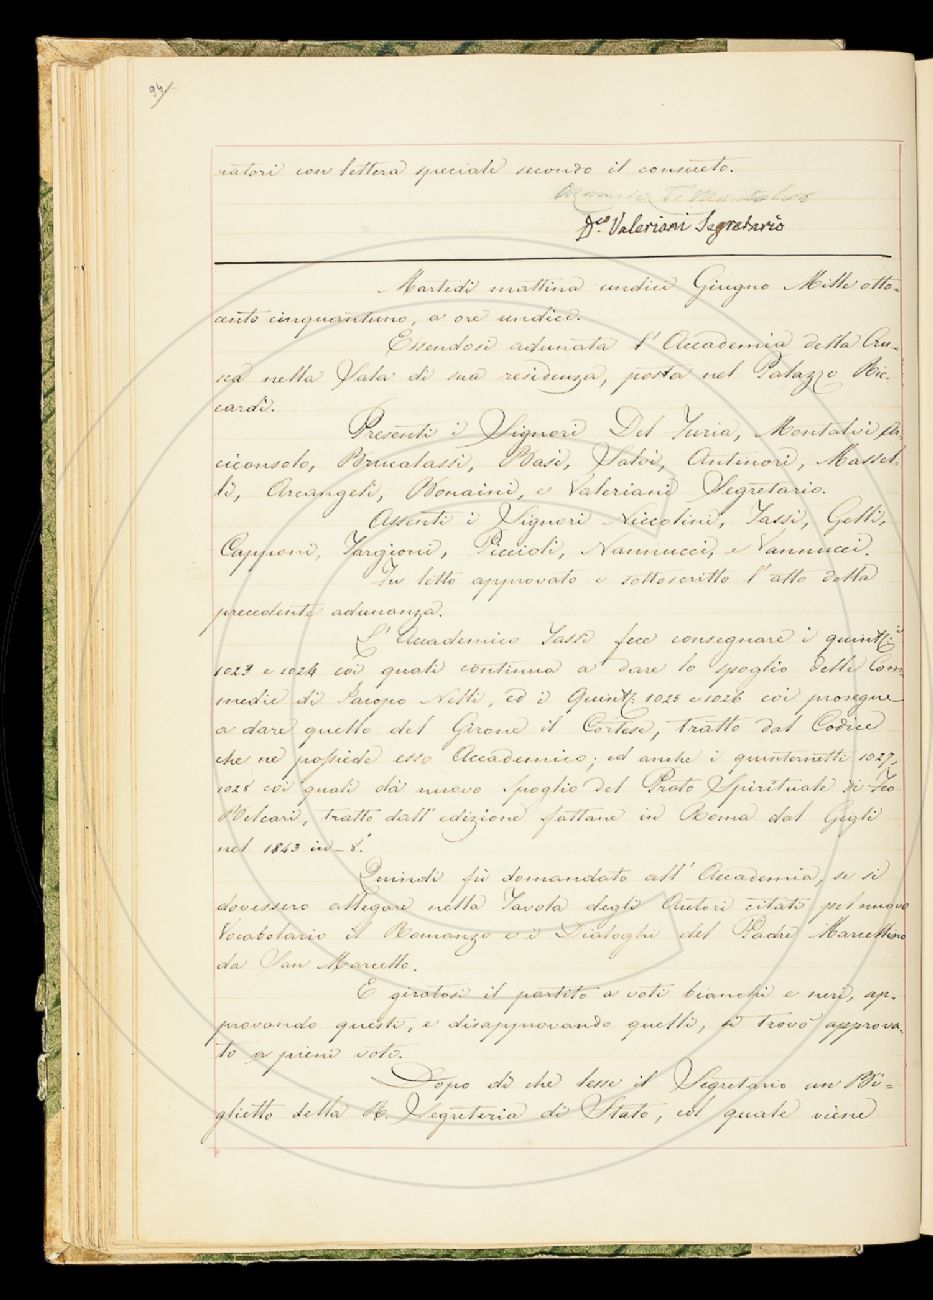 94
ratori con lettera speciale secondo il consueto.
D.co Valeriani Segretario
Martedì mattina undici Giugno Mille otto-
cento cinquantuno, a ore undici.
Essendosi adunata l'Accademia della Cru-
sca nella Sala di sua residenza, posta nel Palazzo Ric-
cardi.
Presenti i Signori Del Furia, Montalvi Ar-
ciconsolo, Brucalassi, Basi, Salvi, Antinori, Massel-
li, Arcangeli, Bonaini, e Valeriani Segretario.
Assenti i Signori Niccolini, Tassi, Gelli,
Capponi, Targioni, Piccioli, Nannucci, e Vannucci.
Fu letto approvato e sottoscritto l'atto della
precedente adunanza.
L'Accademico Tassi fece consegnare i quint.i
1023 e 1024 coi quali continua a dare lo spoglio delle Com-
medie di Jacopo Nelli, ed i Quint. 1025 e 1026 coi prosegue
a dare quello del Girone il Cortese, tratto dal Codice
che ne possiede esso Accademico; ed anche i quinternetti 1027,
1028 coi quali dà nuovo spoglio del Prato Spirituale di Feo
Belcari, tratto dall'edizione fattane in Roma dal Gigli
nel 1843 in-8.°
Quindi fù domandato all'Accademia, se si
dovessero allegare nella Tavola degli Autori citati pel nuovo
Vocabolario il Romanzo e i Dialoghi del Padre Marcellino
da San Marcello.
E giratosi il partito a voti bianchi e neri, ap-
provando questi, e disapprovando quelli, si trovò approva-
to a pieni voti.
Dopo di che lesse il Segretario un Bi-
glietto della R. Segreteria di Stato, col quale viene